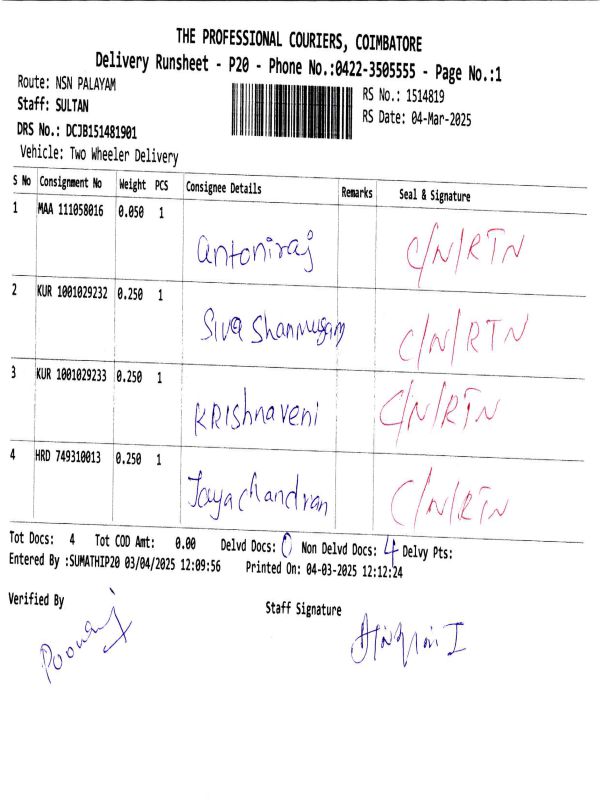 THE PROFESSIONAL COURIERS, COIMBATORE
Delivery Runsheet - P20 - Phone No.:0422-3505555 - Page No.:1
Route: NSN PALAYAM
RS No.: 1514819
Staff: SULTAN
RS Date: 04-Mar-2025
DRS No.: DCJB151481901
Vehicle: Two Wheeler Delivery
S No Consignment No Weight PCS Consignee Details Remarks Seal & Signature
1 MAA 111058016 0.050 1 Antoniraj C/N/RTN
2 KUR 1001029232 0.250 1 Siva Shanmugam C/N/RTN
3 KUR 1001029233 0.250 1 KRIShnaveni C/N/RTN
4 HRD 749310013 0.250 1 Jayachandran C/N/RTN
Tot Docs: 4 Tot COD Amt: 0.00 Delvd Docs: 0 Non Delvd Docs: 4 Delvy Pts:
Entered By :SUMATHIP20 03/04/2025 12:09:56 Printed On: 04-03-2025 12:12:24
Verified By
Staff Signature